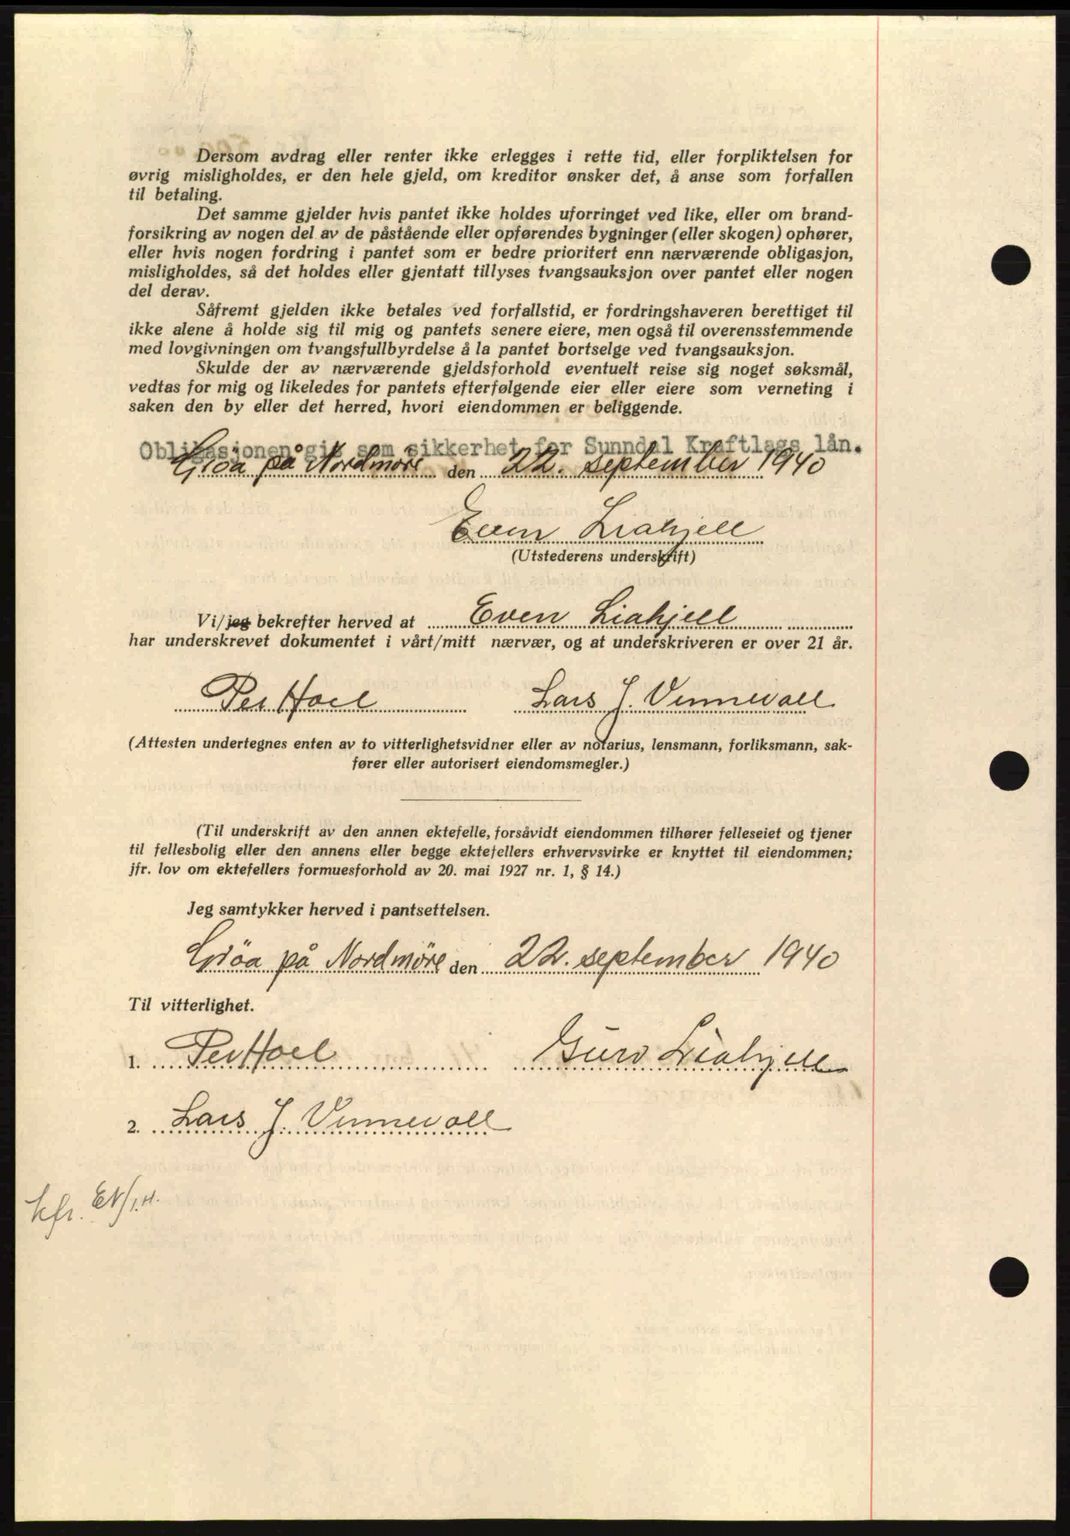 Dersom avdrag eller renter ikke erlegges i rette tid, eller forpliktelsen for
øvrig misligholdes, er den hele gjeld, om kreditor ønsker det, å anse som forfallen
til betaling.
Det samme gjelder hvis pantet ikke holdes uforringet ved like, eller om brand-
forsikring av nogen del av de påstående eller opførendes bygninger (eller skogen) ophører,
eller hvis nogen fordring i pantet som er bedre prioritert enn nærværende obligasjon,
misligholdes, så det holdes eller gjentatt tillyses tvangsauksjon over pantet eller nogen
del derav.
Såfremt gjelden ikke betales ved forfallstid, er fordringshaveren berettiget til
ikke alene å holde sig til mig og pantets senere eiere, men også til overensstemmende
med lovgivningen om tvangsfullbyrdelse å la pantet bortselge ved tvangsauksjon.
Skulde der av nærværende gjeldsforhold eventuelt reise sig noget søksmål,
vedtas for mig og likeledes for pantets efterfølgende eier eller eiere som verneting i
saken den by eller det herred, hvori eiendommen er beliggende.
Obligasjonen gis som sikkerhet for Sunndal Kraftlags lån.
Grøa på Nordmøre den 22. september 1940
Even Liahjell
(Utstederens underskrift)
Vi/jeg bekrefter herved at Even Liahjell
har underskrevet dokumentet i vårt/mitt nærvær, og at underskriveren er over 21 år.
Per Hoel Lars J. Vinnevoll
(Attesten undertegnes enten av to vitterlighetsvidner eller av notarius, lensmann, forliksmann, sak-
fører eller autorisert eiendomsmegler.)
(Til underskrift av den annen ektefelle, forsåvidt eiendommen tilhører felleseiet og tjener
til fellesbolig eller den annens eller begge ektefellers erhvervsvirke er knyttet til eiendommen;
jfr. lov om ektefellers formuesforhold av 20. mai 1927 nr. 1, § 14.)
Jeg samtykker herved i pantsettelsen.
Grøa på Nordmøre den 22. september 1940
Til vitterlighet.
1. Per Hoel Guro Liahjell
2. Lars J. Vinnevoll
kfr.